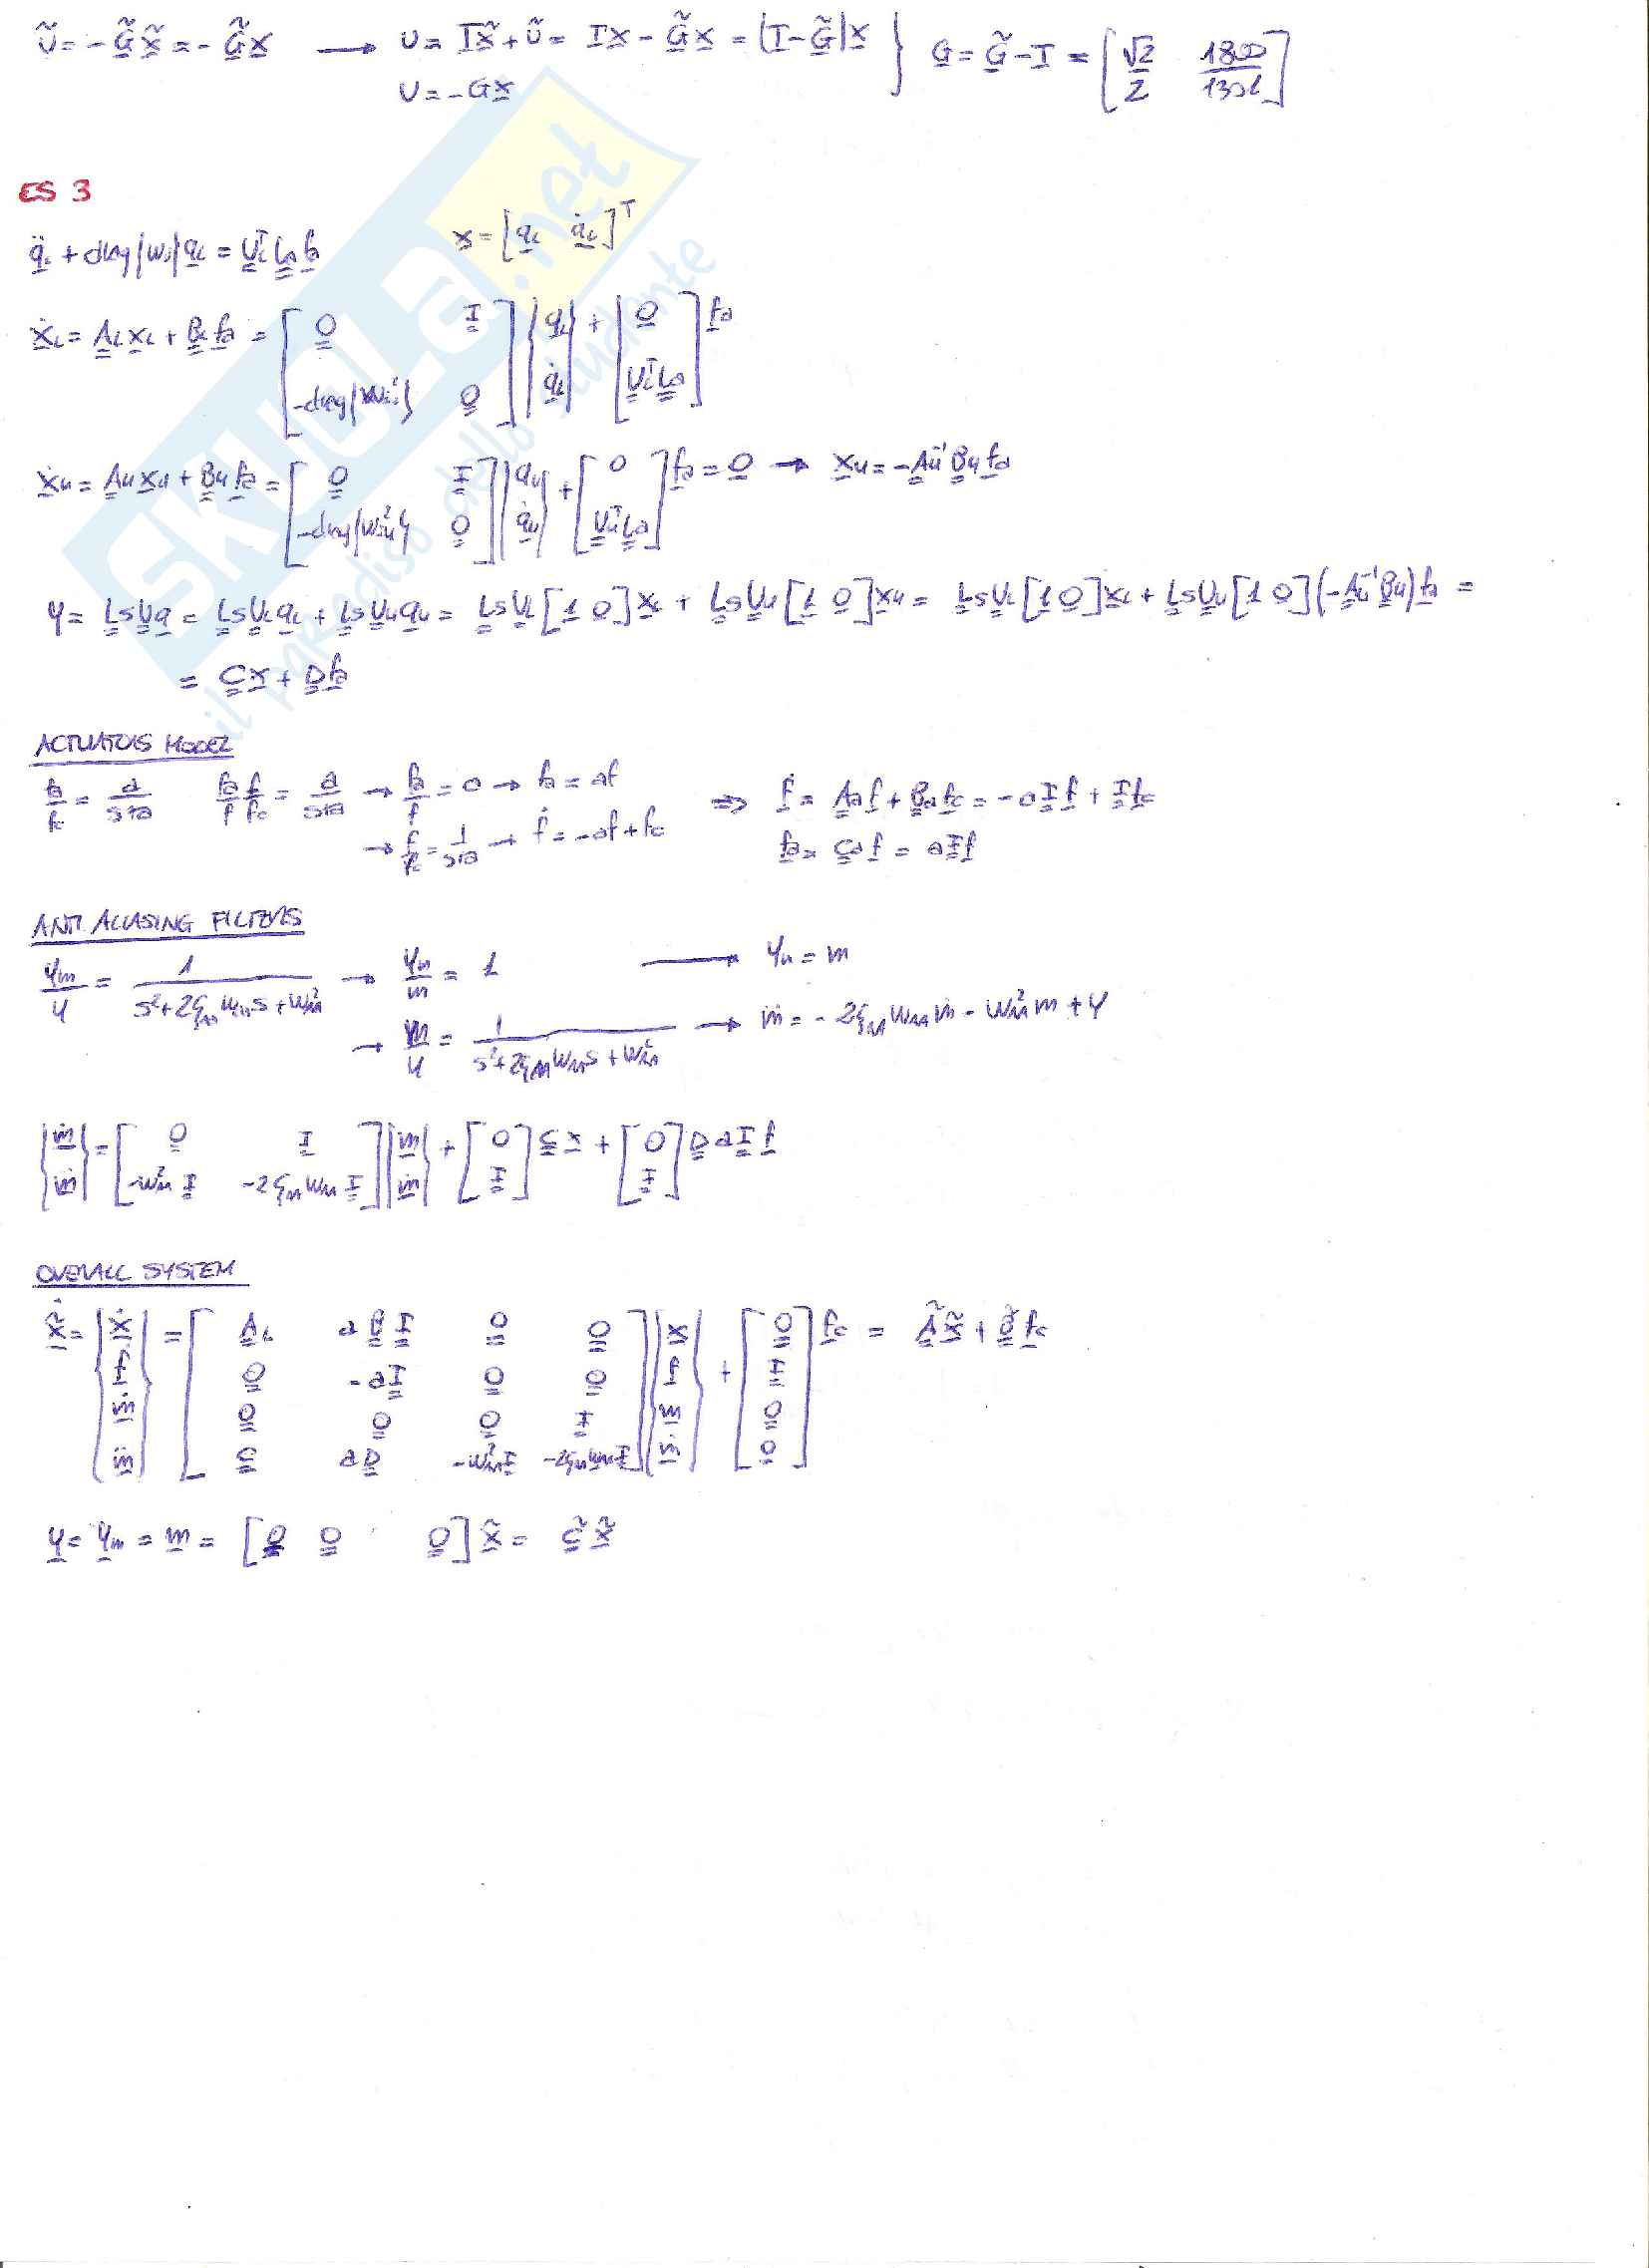 Ũ = - G̃ x̃ = - G̃ x → U = I x̃ + ũ = I x - G̃ x = (I - G̃) x } G = G̃ - I = [ √2/2 1800/1301 ]
U = - G x
ES 3
q̈ₗ + diag{ωᵢ} qₗ = Uₗᵀ Lₐ fₐ x = [ qₗ q̇ₗ ]ᵀ
ẋₗ = Aₗ xₗ + Bₗ fₐ = [ 0 I ; -diag{ωₗᵢ²} 0 ] { qₗ ; q̇ₗ } + [ 0 ; Uₗᵀ Lₐ ] fₐ
ẋᵤ = Aᵤ xᵤ + Bᵤ fₐ = [ 0 I ; -diag{ωᵢᵤ²} 0 ] { qᵤ ; q̇ᵤ } + [ 0 ; Uᵤᵀ Lₐ ] fₐ = 0 → xᵤ = - Aᵤ⁻¹ Bᵤ fₐ
y = Ls U q = Ls Uₗ qₗ + Ls Uᵤ qᵤ = Ls Uₗ [1 0] xₗ + Ls Uᵤ [1 0] xᵤ = Ls Uₗ [1 0] xₗ + Ls Uᵤ [1 0] (- Aᵤ⁻¹ Bᵤ) fₐ =
= C x + D fₐ
ACTUATORS MODEL
fa/fc = a/(s+a) fa/f f/fc = a/(s+a) → fa/f = a → fa = af ⇒ ḟ = Aa f + Ba fc = - a I f + I fc
→ f/fc = 1/(s+a) → ḟ = - af + fc fa = Ca f = a I f
ANTI ALIASING FILTERS
ym/y = 1/(s² + 2ξM ωM s + ωM²) → ym/m = 1 → ym = m
→ m/y = 1/(s² + 2ξM ωM s + ωM²) → m̈ = - 2ξM ωM ṁ - ωM² m + y
{ ṁ ; m̈ } = [ 0 I ; -ωM² I -2ξM ωM I ] { m ; ṁ } + [ 0 ; I ] C x + [ 0 ; I ] D a I f
OVERALL SYSTEM
x̃̇ = { ẋ ; ḟ ; ṁ ; m̈ } = [ Aₗ a B I 0 0 ; 0 - a I 0 0 ; 0 0 0 I ; C a D -ωM² I -2ξM ωM I ] { x ; f ; m ; ṁ } + [ 0 ; I ; 0 ; 0 ] fc = Ã x̃ + B̃ fc
y = ym = m = [ 0 0 0 ] x̃ = C̃ x̃
SKUOLA.net
il paradiso dello studente